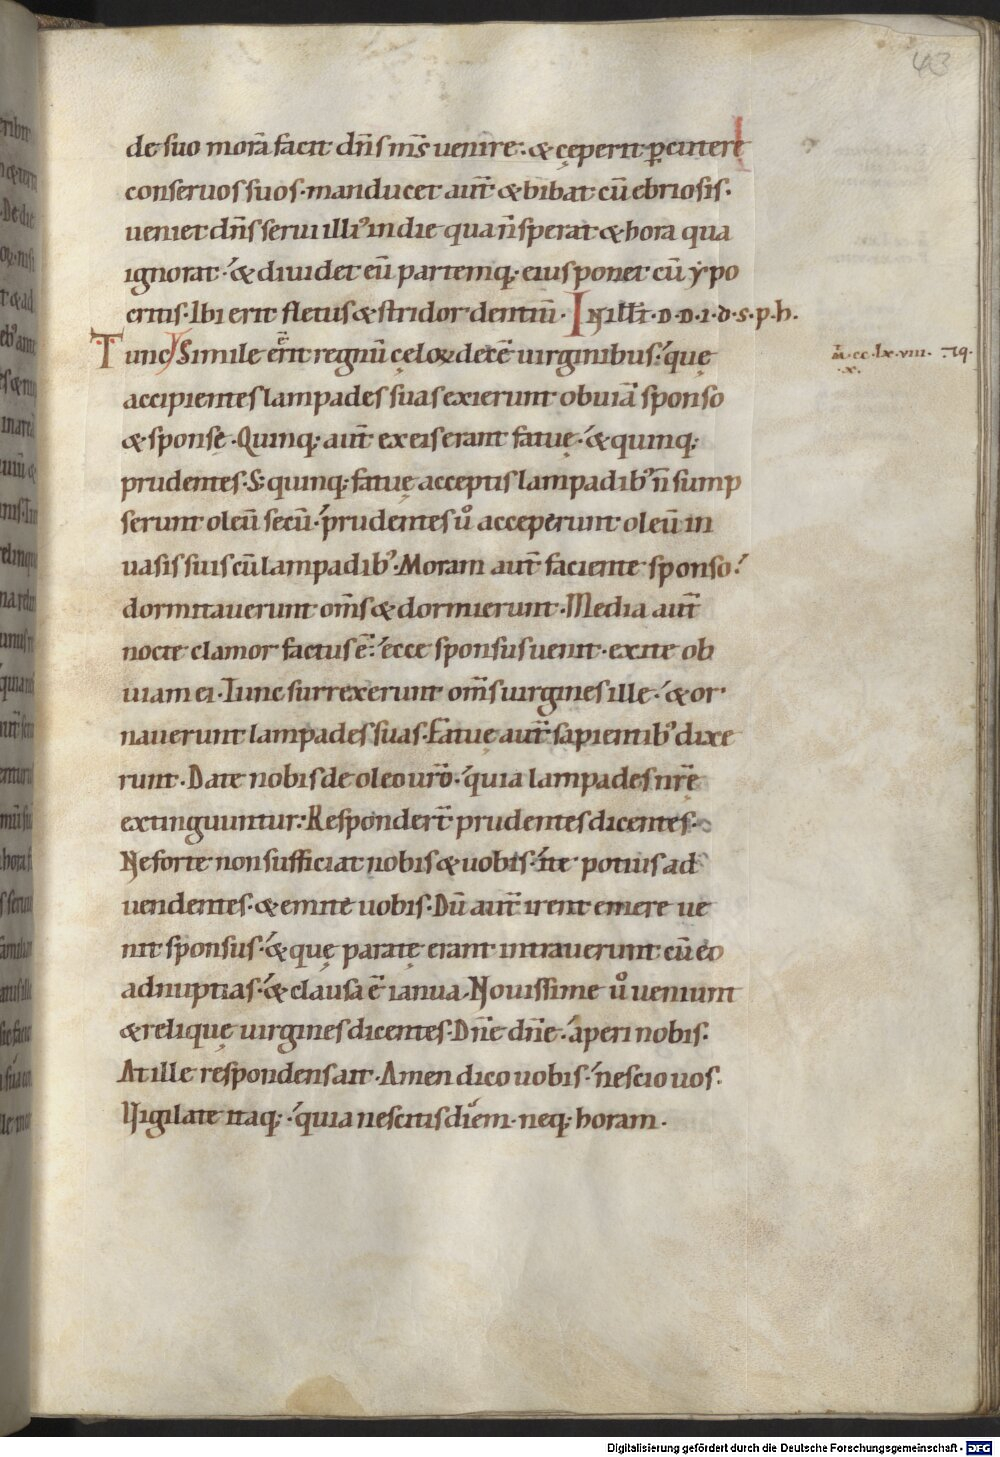 43
de suo morā facit dn̄s ms̄ uenire. & cęperit ꝑcutere
conseruos suos. manducet aut̄ & bibat cū ebriosis.
ueniet dn̄s serui illiꝰ in die qua n̄ sperat & hora qua
ignorat. & diuidet eū partemq; eius ponet cū ypo
critis. Ibi erit fletus & stridor dentiū. In illt̄. D. D. I. d. s. p. h.
Tunc Simile erit regnū cęloꝝ decē uirginibus. quę
M̄. cc. lx. viii.
x.
accipientes lampades suas exierunt obuiā sponso
& sponsę. Quinq; aut̄ ex eis erant fatuę. & quinq;
prudentes. S; quinq; fatuę acceptis lampadibꝰ n̄ sump
serunt oleū secū. prudentes uͦ acceperunt oleū in
uasis suis cū lampadibꝰ. Moram aut̄ faciente sponso.
dormitauerunt om̄s & dormierunt. Media aut̄
nocte clamor factus ē. ecce sponsus uenit. exite ob
uiam ei. Tunc surrexerunt om̄s uirgines ille. & or
nauerunt lampades suas. Fatuę aut̄ sapientibꝰ dixe
runt. Date nobis de oleo ur̄o. quia lampades nr̄ę
extinguuntur. Responder̄t prudentes dicentes.
Ne forte non sufficiat nobis & uobis. ite potius ad
uendentes. & emite uobis. Dū aut̄ irent emere ue
nit sponsus. & quę paratę erant intrauerunt cū eo
ad nuptias. & clausa ē ianua. Nouissime uͦ ueniunt
& reliquę uirgines dicentes. Dn̄e dn̄e. aperi nobis.
At ille respondens ait. Amen dico uobis. nescio uos.
Vigilate itaq;. quia nescitis diem. neq; horam.
Digitalisierung gefördert durch die Deutsche Forschungsgemeinschaft - DFG